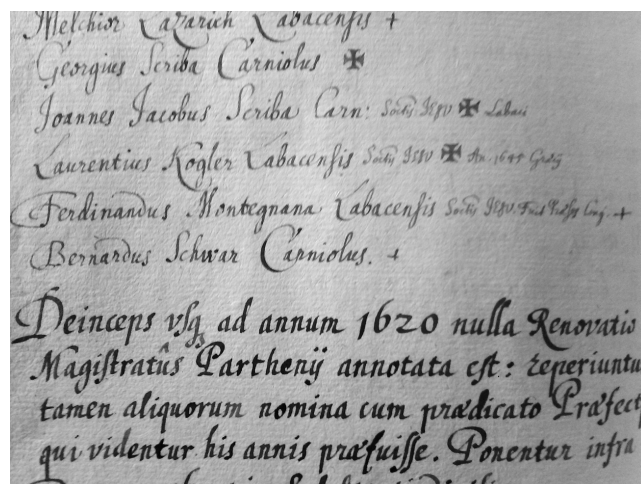 Melchior Lazarich Labacensis +
Georgius Scriba Carniolus ✠
Joannes Jacobus Scriba Carn: Soctis IESV ✠ Labaci
Laurentius Kogler Labacensis Soctis IESV ✠ An. 1645 Græcij
Ferdinandus Montegnana Labacensis Soctis IESV. +
Bernardus Schwar Carniolus. +
Deinceps vsq ad annum 1620 nulla Renovatio
Magistratûs Parthenij annotata est: reperiuntu
tamen aliquorum nomina cum prædicato Præfect
qui videntur his annis præfuisse. Ponentur infra